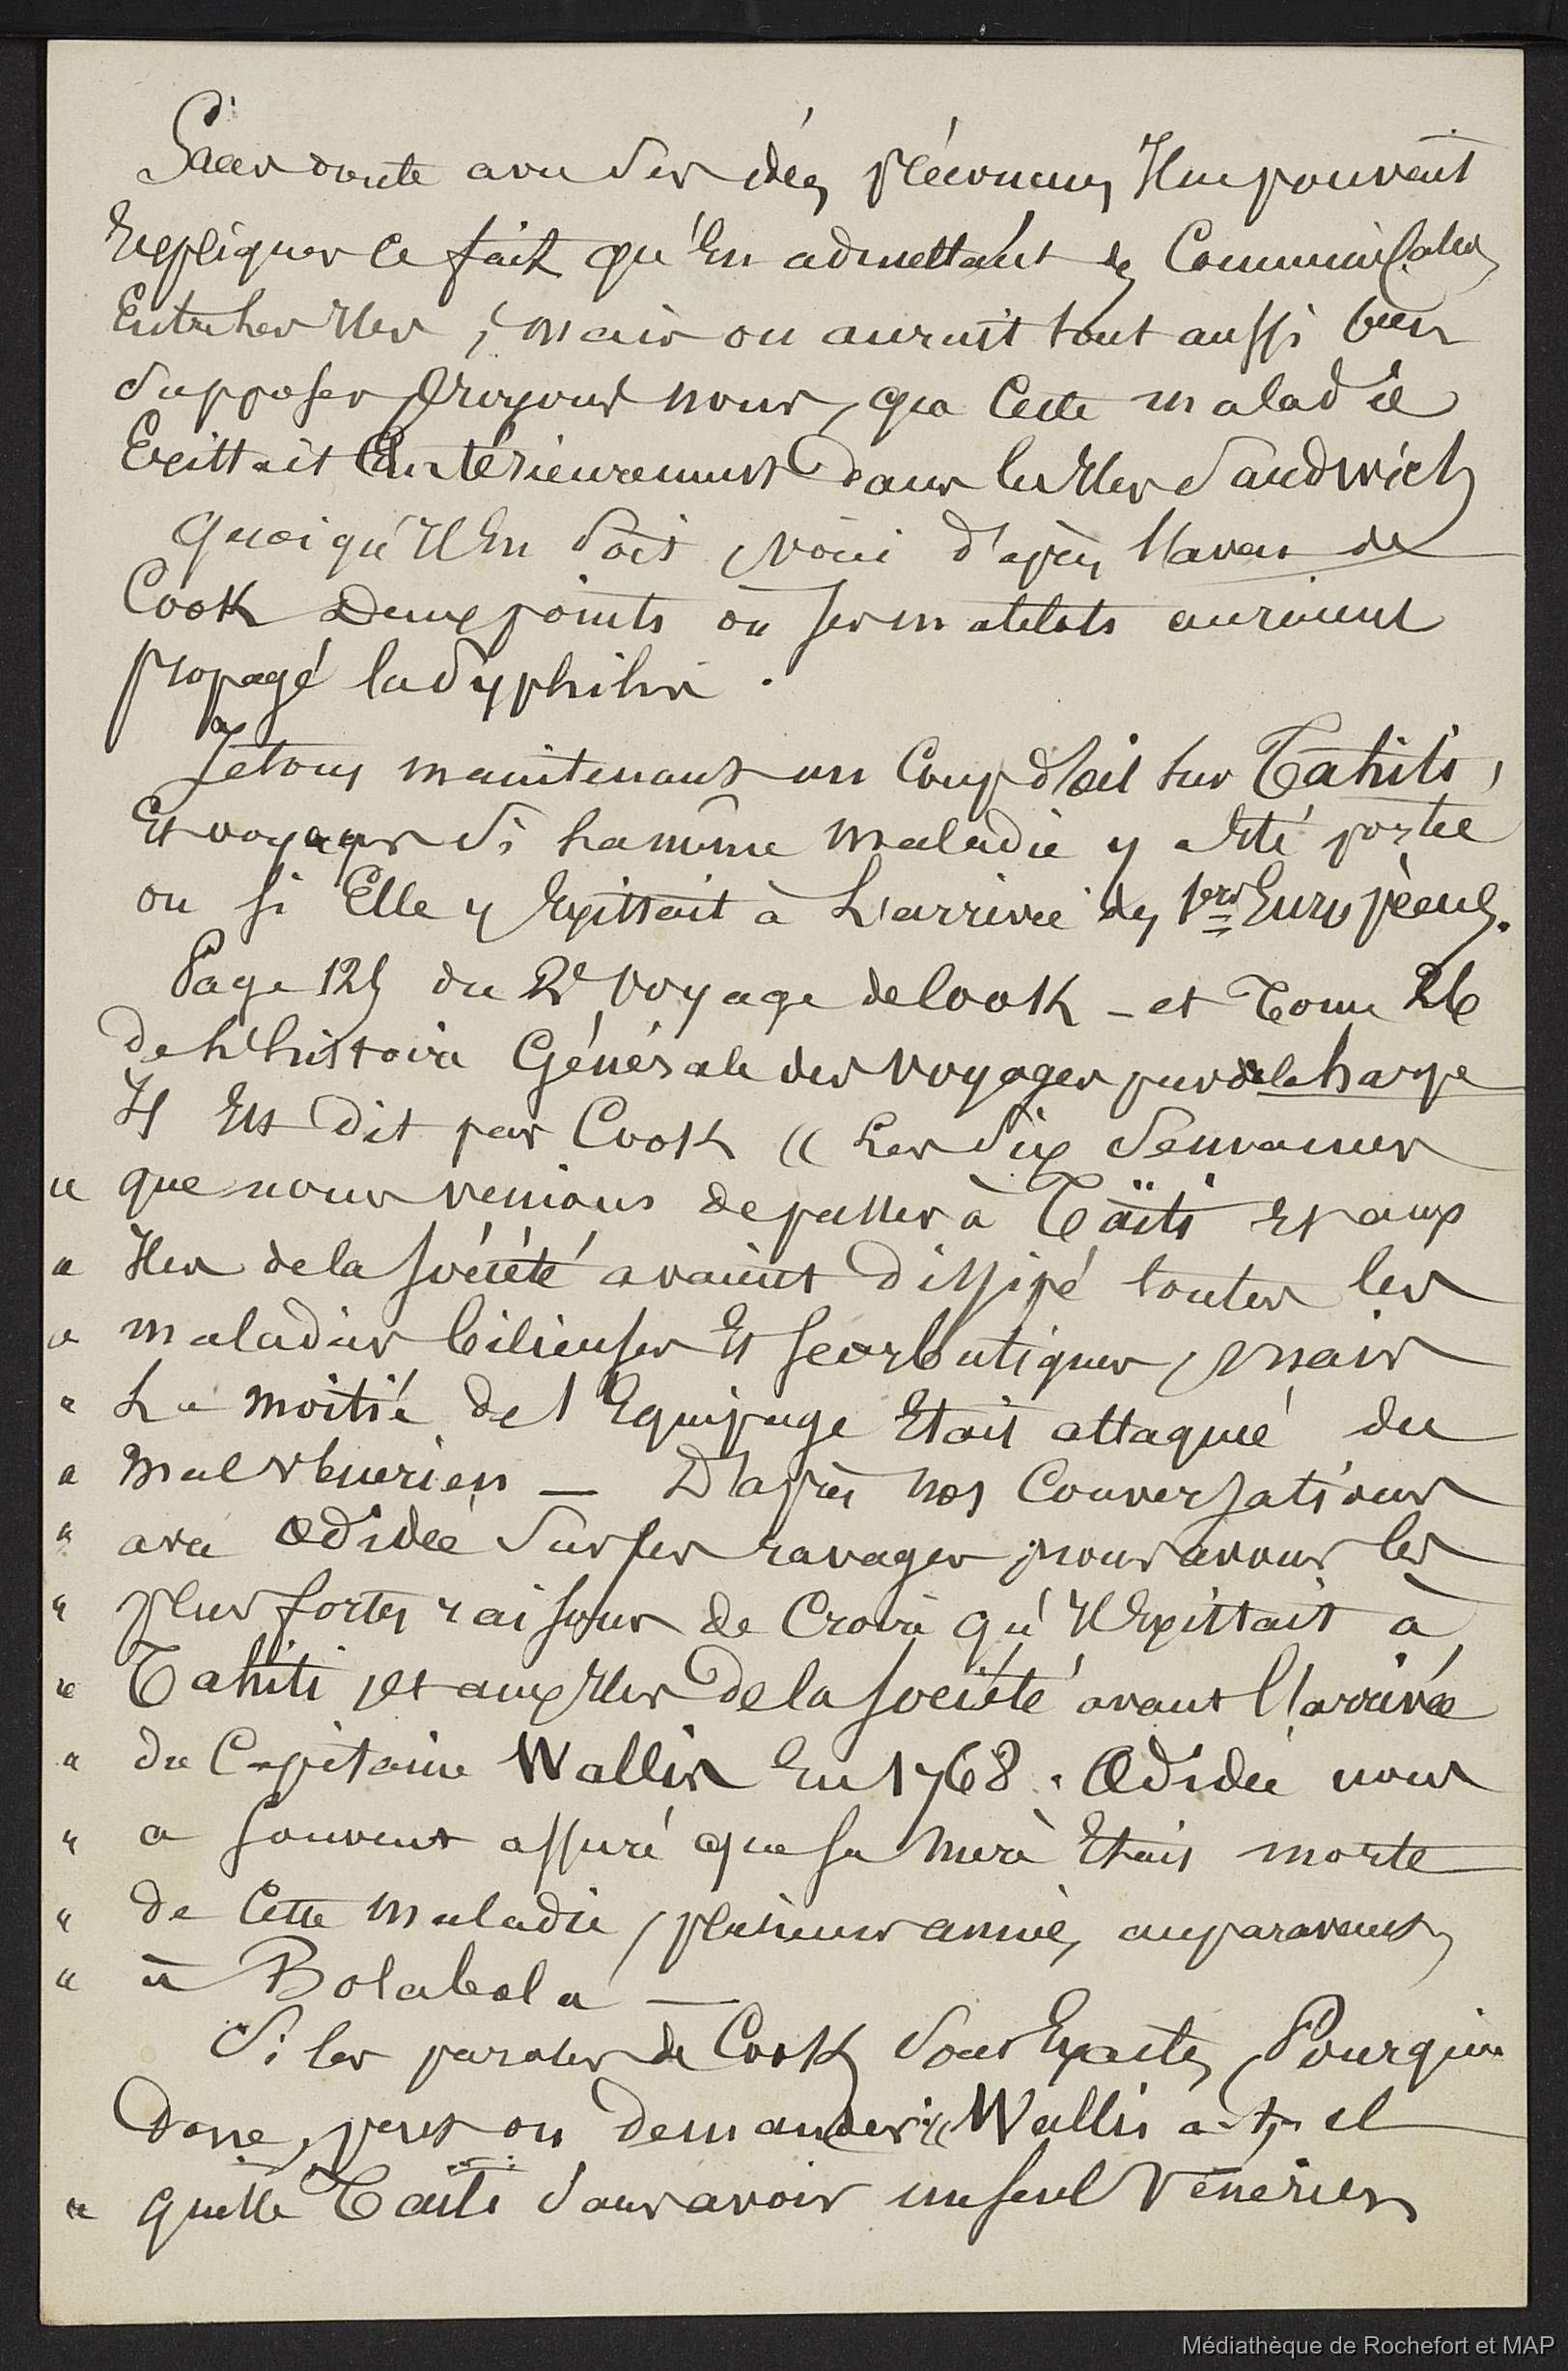 Sans doute avec ses idées préconçues Il ne pouvait
Expliquer ce fait qu'En admettant des Communications
Entre les Iles, mais on aurait tout aussi bien
Supposer, croyons nous, que Cette maladie
Existait Antérieurement dans les Iles Sandwich
Quoiqu'Il En soit, voici d'après l'aveu de
Cook Deux points où ses matelots auraient
propagé la Syphilis.
Jetons maintenant un Coup d'œil sur Tahiti,
Et voyons si la même maladie y a Eté portée
ou si Elle y Existait à L'arrivée des 1ers Européens.
Page 125 du 2e Voyage de Cook - et Tome 26
De L'histoire Générale des voyages par de laharpe
Il Est Dit par Cook (( Les Six Semaines
" que nous venions de passer à Taïti Et aux
" Iles de la Société avaient Dissipé toutes les
" maladies bilieuses Et Scorbutiques, mais
" La moitié de l'Equipage Etait attaquée du
" mal vénérien — D'après nos Conversations
" avec Œdidée Sur ses ravages, nous avons les
" plus fortes raisons de Croire qu'Il Existait à
" Tahiti, et aux Iles De la Société avant l'arrivée
" du Capitaine Wallis En 1768. Œdidée nous
" a souvent assuré que sa mère Etait morte
" de Cette maladie, plusieurs années auparavant,
" à Bolabola —
Si les paroles de Cook Sont Exactes, Pourquoi
Donc, peut on demander, (( Wallis a-t-il
" quitté Taïti Sans avoir un seul Vénérien
Médiathèque de Rochefort et MAP